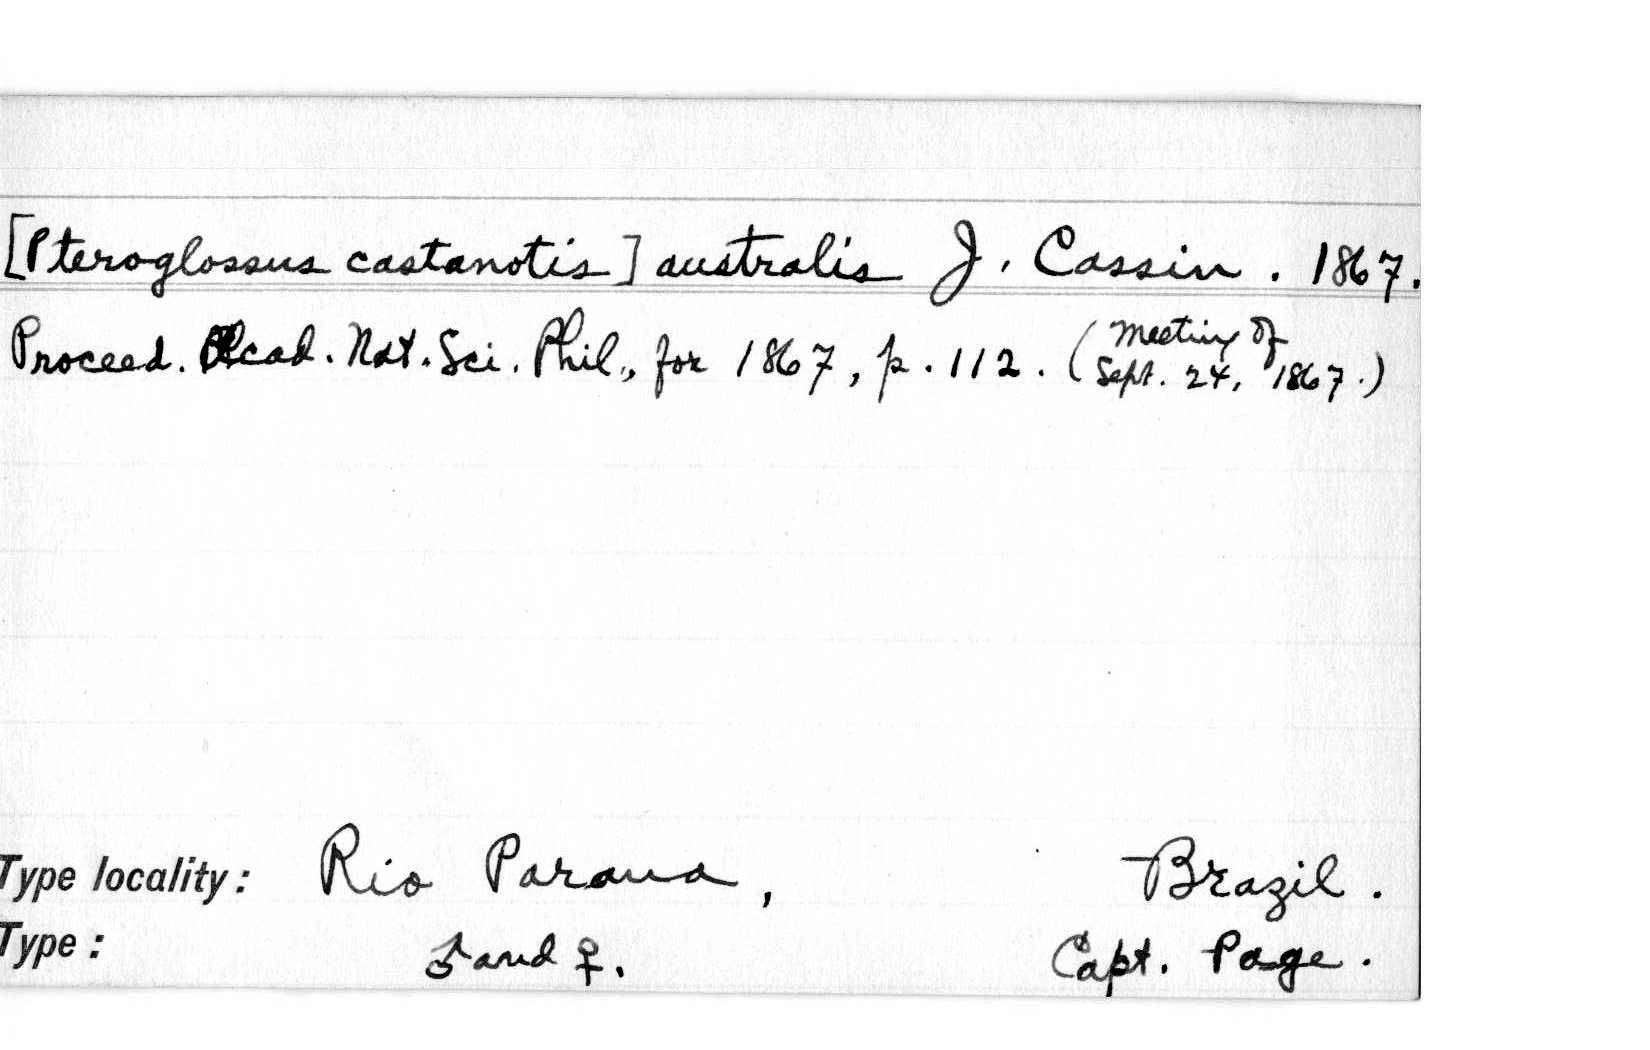 [Pteroglossus castanotis] australis J. Cassin. 1867.
Proceed. Acad. Nat. Sci. Phil., for 1867, p. 112. (Meeting of Sept. 24, 1867.)
Type locality: Rio Parana, Brazil.
Type: ♂ and ♀. Capt. Page.